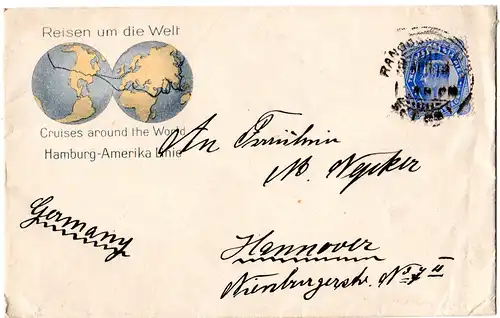 Reisen um die Welt
Cruises around the World
Hamburg-Amerika Linie
RANGO
An Fräulein
M.
Germany
Hannover
Nienburgerstr. No 7